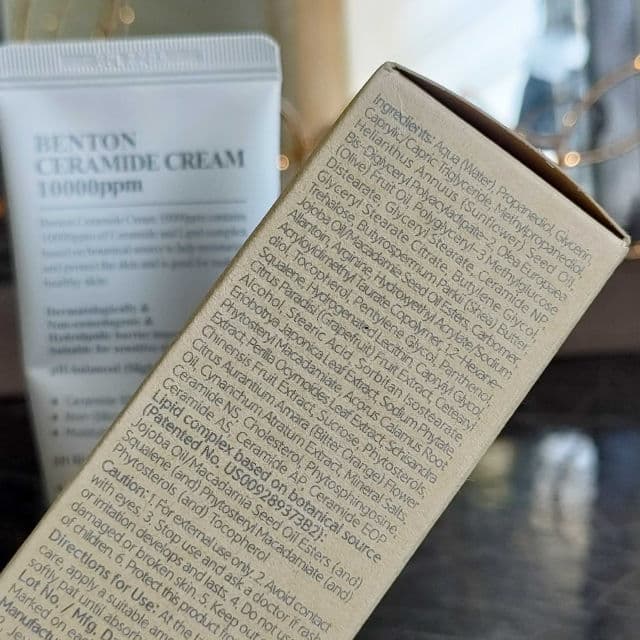 BENTON
CERAMIDE CREAM
10000ppm
Benton Ceramide Cream 10000ppm contains
10000ppm of Ceramide and Lipid complex
based on botanical source to help
and protect the skin and is good for
healthy skin
Dermatologically &
Noncomedogenic &
Suitable for
pH balanced
Ingredients: Aqua (Water), Propanediol, Glycerin,
Caprylic/Capric Triglyceride, Methylpropanediol,
Helianthus Annuus (Sunflower) Seed Oil,
Bis-Diglyceryl Polyacyladipate-2, Olea Europaea
(Olive) Fruit Oil, Polyglyceryl-3 Methylglucose
Distearate, Glyceryl Stearate, Ceramide NP,
Glyceryl Stearate Citrate, Butylene Glycol,
Trehalose, Butyrospermum Parkii (Shea) Butter,
Jojoba Oil/Macadamia Seed Oil Esters, Carbomer,
Allantoin, Arginine, Hydroxyethyl Acrylate/Sodium
Acryloyldimethyl Taurate Copolymer, 1,2-Hexane-
diol, Tocopherol, Pentylene Glycol, Panthenol,
Squalene, Hydrogenated Lecithin, Caprylyl Glycol,
Citrus Paradisi (Grapefruit) Fruit Extract, Cetearyl
Alcohol, Stearic Acid, Sorbitan Isostearate,
Eriobotrya Japonica Leaf Extract, Sodium Phytate,
Phytosteryl Macadamiate, Acorus Calamus Root
Extract, Perilla Ocymoides Leaf Extract, Schizandra
Chinensis Fruit Extract, Sucrose, Phytosterols,
Citrus Aurantium Amara (Bitter Orange) Flower
Oil, Cynanchum Atratum Extract, Mineral Salts,
Ceramide NS, Cholesterol, Phytosphingosine,
Ceramide AS, Ceramide AP, Ceramide EOP
Lipid complex based on botanical source
(Patented No. US009289373B2):
Jojoba Oil/Macadamia Seed Oil Esters (and)
Squalene (and) Phytosteryl Macadamiate (and)
Phytosterols (and) Tocopherol
Caution: 1. For external use only. 2. Avoid contact
with eyes. 3. Stop use and ask a doctor if rash
or irritation develops and lasts. 4. Do not use
damaged or broken skin. 5. Keep out
of children. 6. Protect this product from
Directions for Use: At the
care, apply a suitable
softly pat until absorb
Lot No. / Mfg. D
Marked on
Manufactu